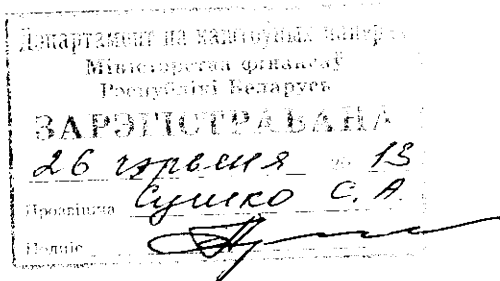 Дэпартамент па каштоўных паперах
Міністэрства фінансаў
Рэспублікі Беларусь
ЗАРЭГІСТРАВАНА
26 чэрвеня 2013
Прозвішча Сушко С. А.
Подпіс